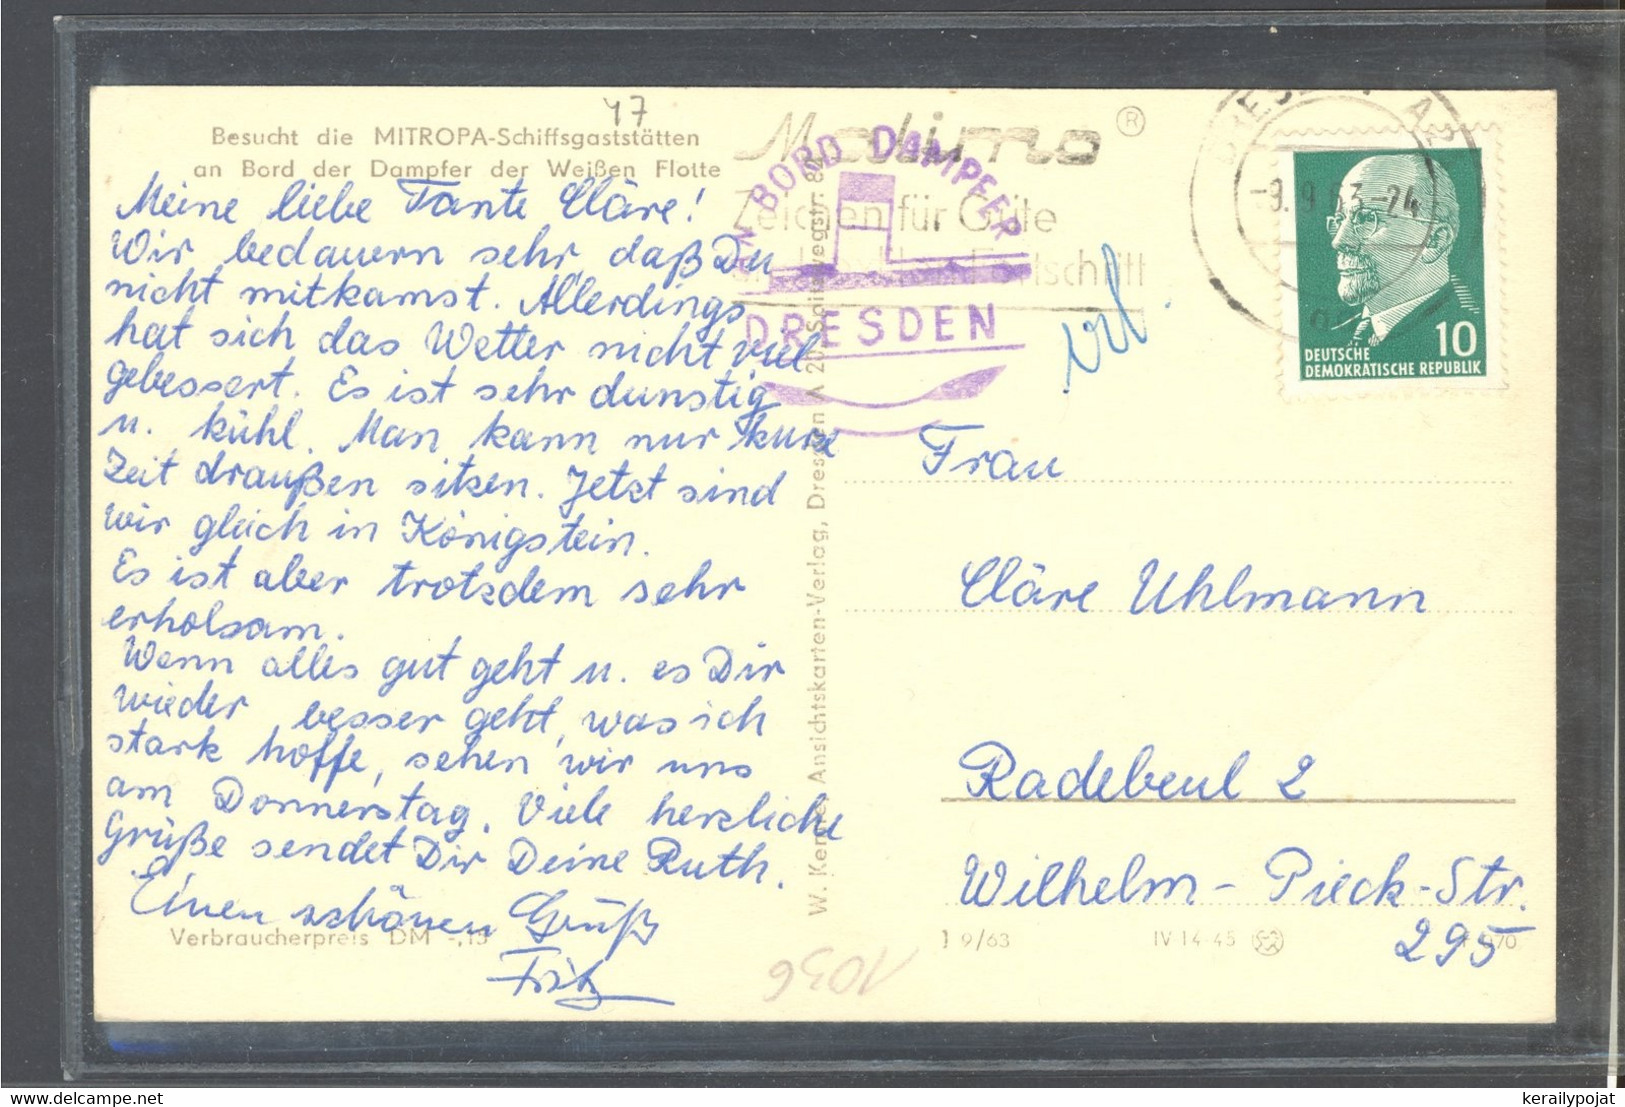 47
Besucht die MITROPA-Schiffsgaststätten
an Bord der Dampfer der Weißen Flotte
Meine liebe Tante Cläre!
Wir bedauern sehr, daß Du
nicht mitkamst. Allerdings
hat sich das Wetter nicht viel
gebessert. Es ist sehr dunstig
u. kühl. Man kann nur kurze
Zeit draußen sitzen. Jetzt sind
wir gleich in Königstein.
Es ist aber trotzdem sehr
erholsam.
Wenn alles gut geht u. es Dir
wieder besser geht, was ich
stark hoffe, sehen wir uns
am Donnerstag. Viele herzliche
Grüße sendet Dir Deine Ruth.
Einen schönen Gruß
Fritz
Verbraucherpreis DM -,15
Malimo ®
Zeichen für Güte
Fortschritt
AN BORD DAMPFER
DRESDEN
-9. 9. 63 -24
10
DEUTSCHE
DEMOKRATISCHE REPUBLIK
Ansichtskarten-Verlag, Dresden A 20,
Frau
Cläre Uhlmann
Radebeul 2
Wilhelm-Pieck-Str.
295
J 9/63 IV 14-45
1036
kerailypojat